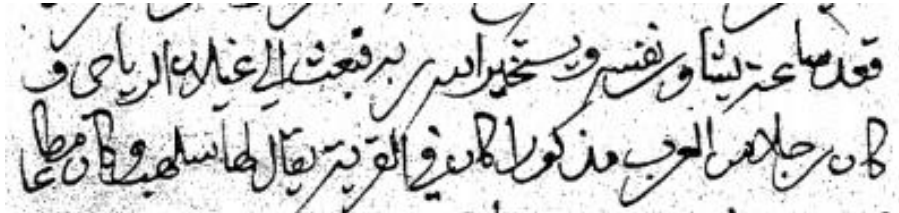 قعد ساعة يشاور نفسه ويستخير الله ربه فبعث إلي غيلان الرياحي و
كان رجلا من العرب مذكورا كان في القرية يقال لها سلهب وكان مطا عا